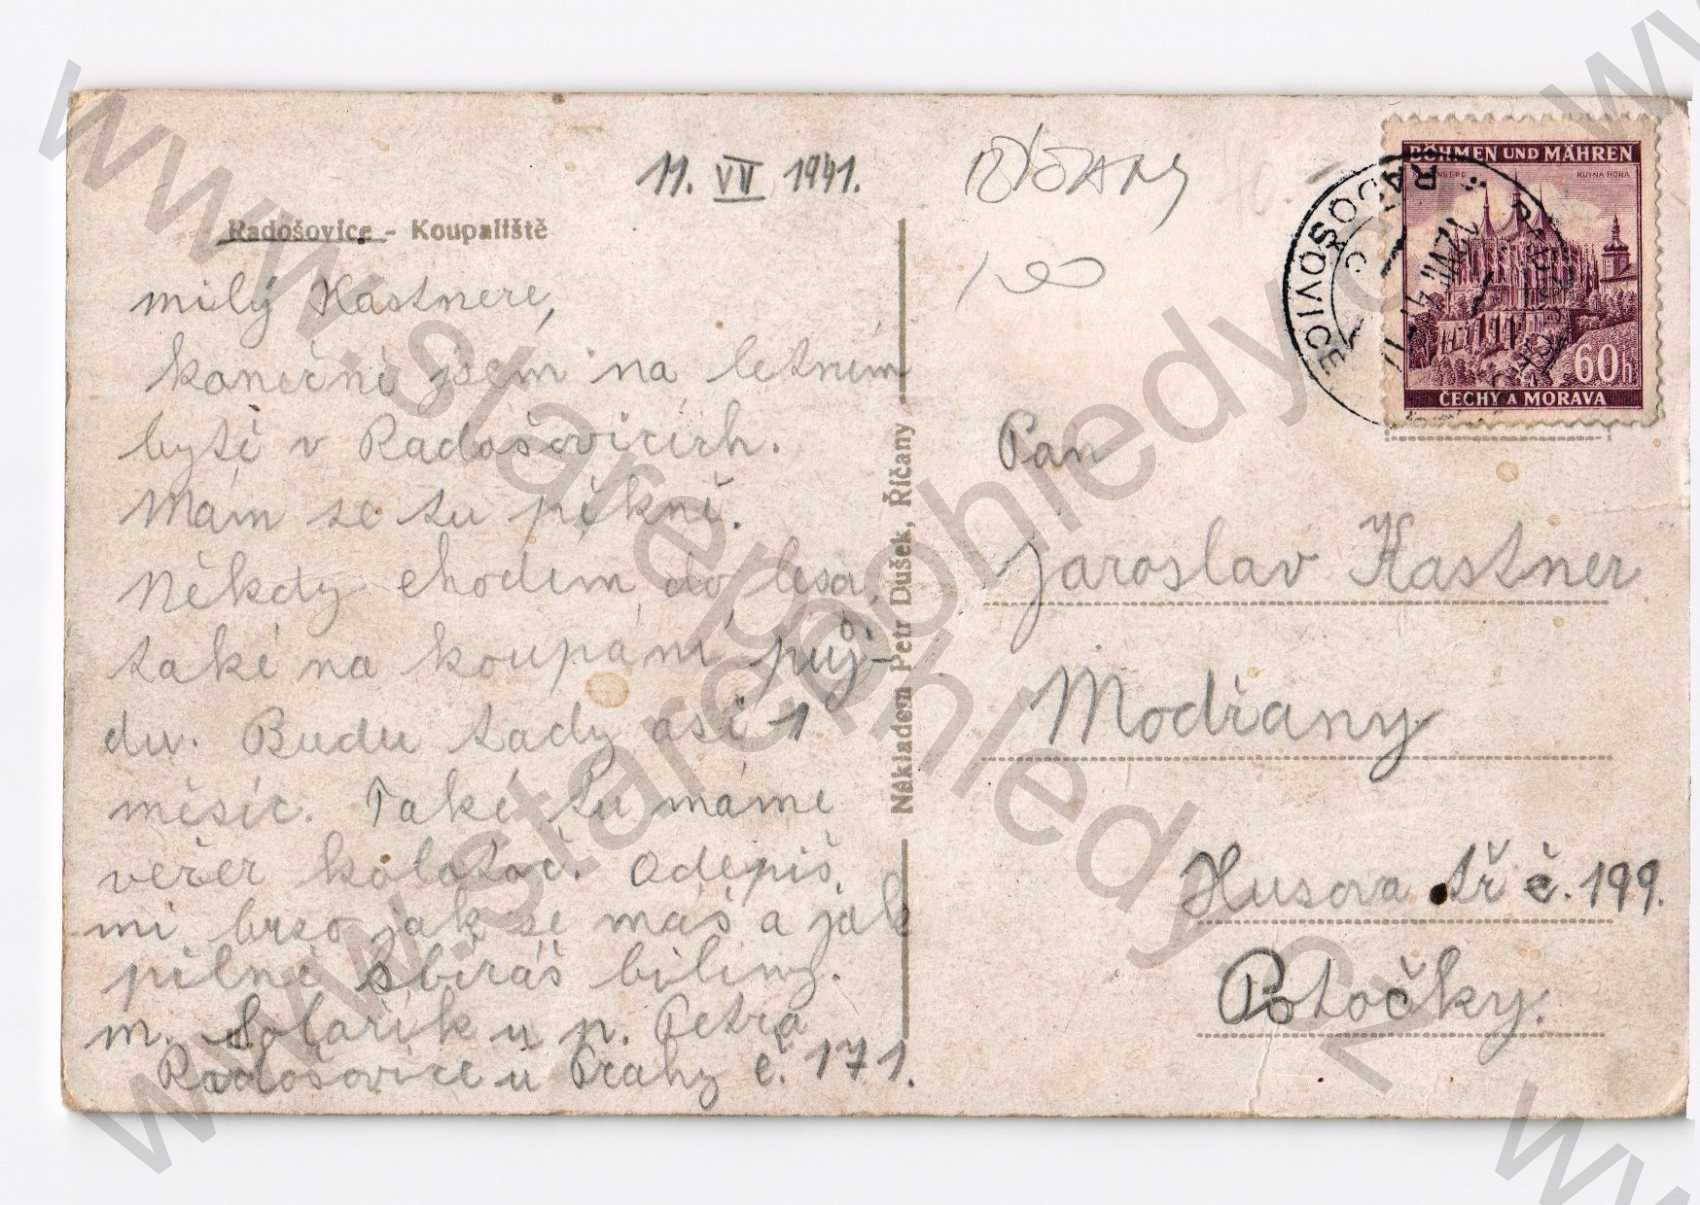 11. VII 1941.
Radošovice - Koupaliště
milý Kastnere,
konečně jsem na letním
bytě v Radošovicích.
Mám se tu pěkně.
Někdy chodím do lesa,
také na koupání půj-
du. Budu tady asi 1
měsíc. Také tu máme
večer kolotoč. Odepiš
mi brzo jak se máš a jak
pilně sbíráš biliny.
m. Solařík u p. Petra
Radošovice u Prahy č. 171.
Nákladem Petr Dušek, Říčany
BÖHMEN UND MÄHREN
KUTNÁ HORA
60h
ČECHY A MORAVA
RADOSOVICE
12 VII 41
Pan
Jaroslav Kastner
Modřany
Husova tř č. 199.
Potočky.
www.starepohledy.cz
www.starepohledy.cz